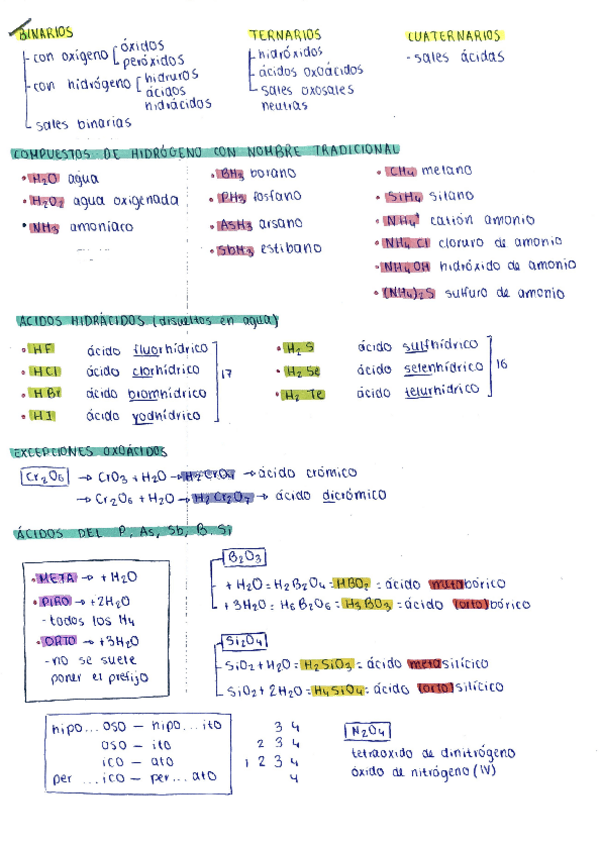 BINARIOS
- con oxígeno [ óxidos
peróxidos
- con hidrógeno [ hidruros
ácidos
hidrácidos
- sales binarias
TERNARIOS
- hidróxidos
- ácidos oxoácidos
- sales oxosales
neutras
CUATERNARIOS
- sales ácidas
COMPUESTOS DE HIDRÓGENO CON NOMBRE TRADICIONAL
• H₂O agua
• H₂O₂ agua oxigenada
• NH₃ amoniaco
• BH₃ borano
• PH₃ fosfano
• AsH₃ arsano
• SbH₃ estibano
• CH₄ metano
• SiH₄ silano
• NH₄⁺ catión amonio
• NH₄Cl cloruro de amonio
• NH₄OH hidróxido de amonio
• (NH₄)₂S sulfuro de amonio
ÁCIDOS HIDRÁCIDOS (disueltos en agua)
• HF ácido fluorhídrico
• HCl ácido clorhídrico
• HBr ácido bromhídrico
• HI ácido yodhídrico
17
• H₂S ácido sulfhídrico
• H₂Se ácido selenhídrico
• H₂Te ácido telurhídrico
16
EXCEPCIONES OXOÁCIDOS
Cr₂O₆ → CrO₃ + H₂O → H₂CrO₄ → ácido crómico
→ Cr₂O₆ + H₂O → H₂Cr₂O₇ → ácido dicrómico
ÁCIDOS DEL P, As, Sb, B, Si
• META → + H₂O
• PIRO → +2H₂O
- todos los H₄
• ORTO → +3H₂O
- no se suele
poner el prefijo
B₂O₃
+ H₂O = H₂B₂O₄ = HBO₂ = ácido metabórico
+ 3H₂O = H₆B₂O₆ = H₃BO₃ = ácido (orto)bórico
Si₂O₄
SiO₂ + H₂O = H₂SiO₃ = ácido metasilícico
SiO₂ + 2H₂O = H₄SiO₄ = ácido (orto)silícico
hipo...oso – hipo...ito
oso – ito
ico – ato
per ...ico – per...ato
3 4
2 3 4
1 2 3 4
4
N₂O₄
tetraoxido de dinitrógeno
óxido de nitrógeno (IV)